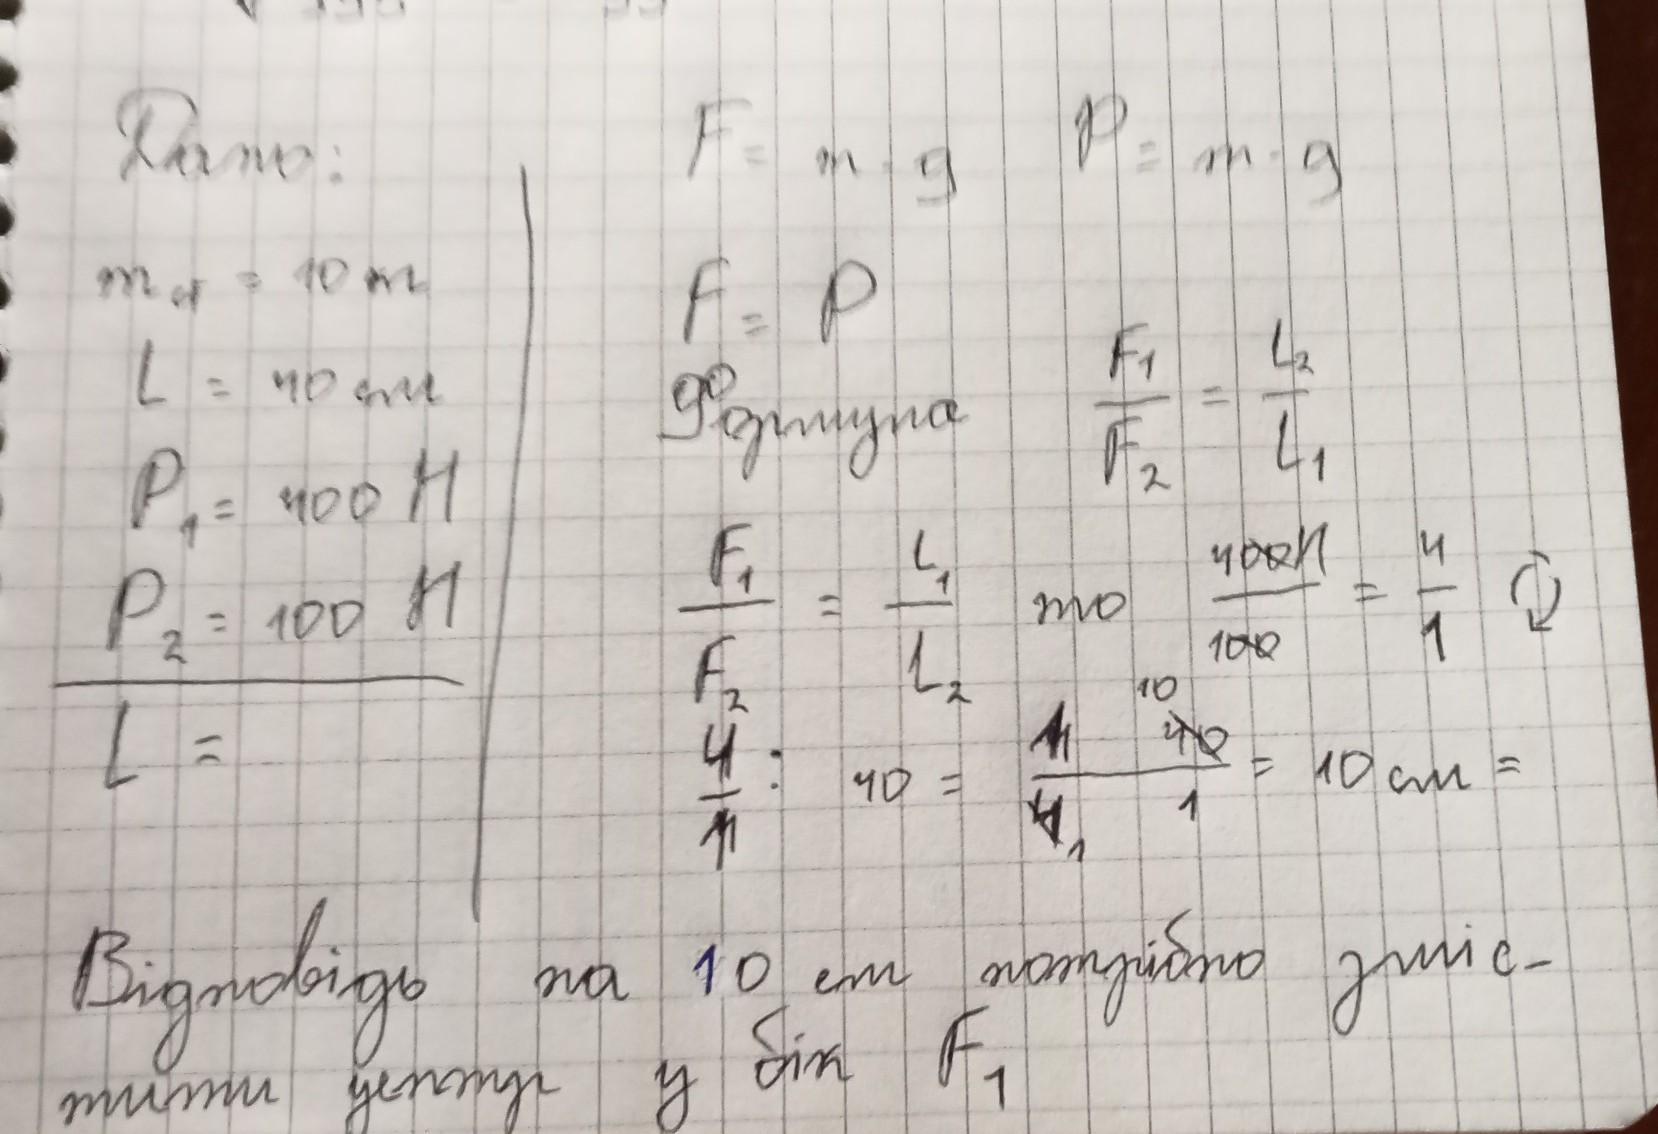 Дано:
m ст = 10 т
L = 40 см
P₁ = 400 Н
P₂ = 100 Н
L =
F = m · g P = m · g
F = P
Формула F₁/F₂ = L₂/L₁
F₁/F₂ = L₁/L₂ то 400Н/100 = 4/1
4/1 : 40 = 1 40/4 1 = 10 см =
10
1
Відповідь на 10 см потрібно зміс-
тити центр у бік F₁